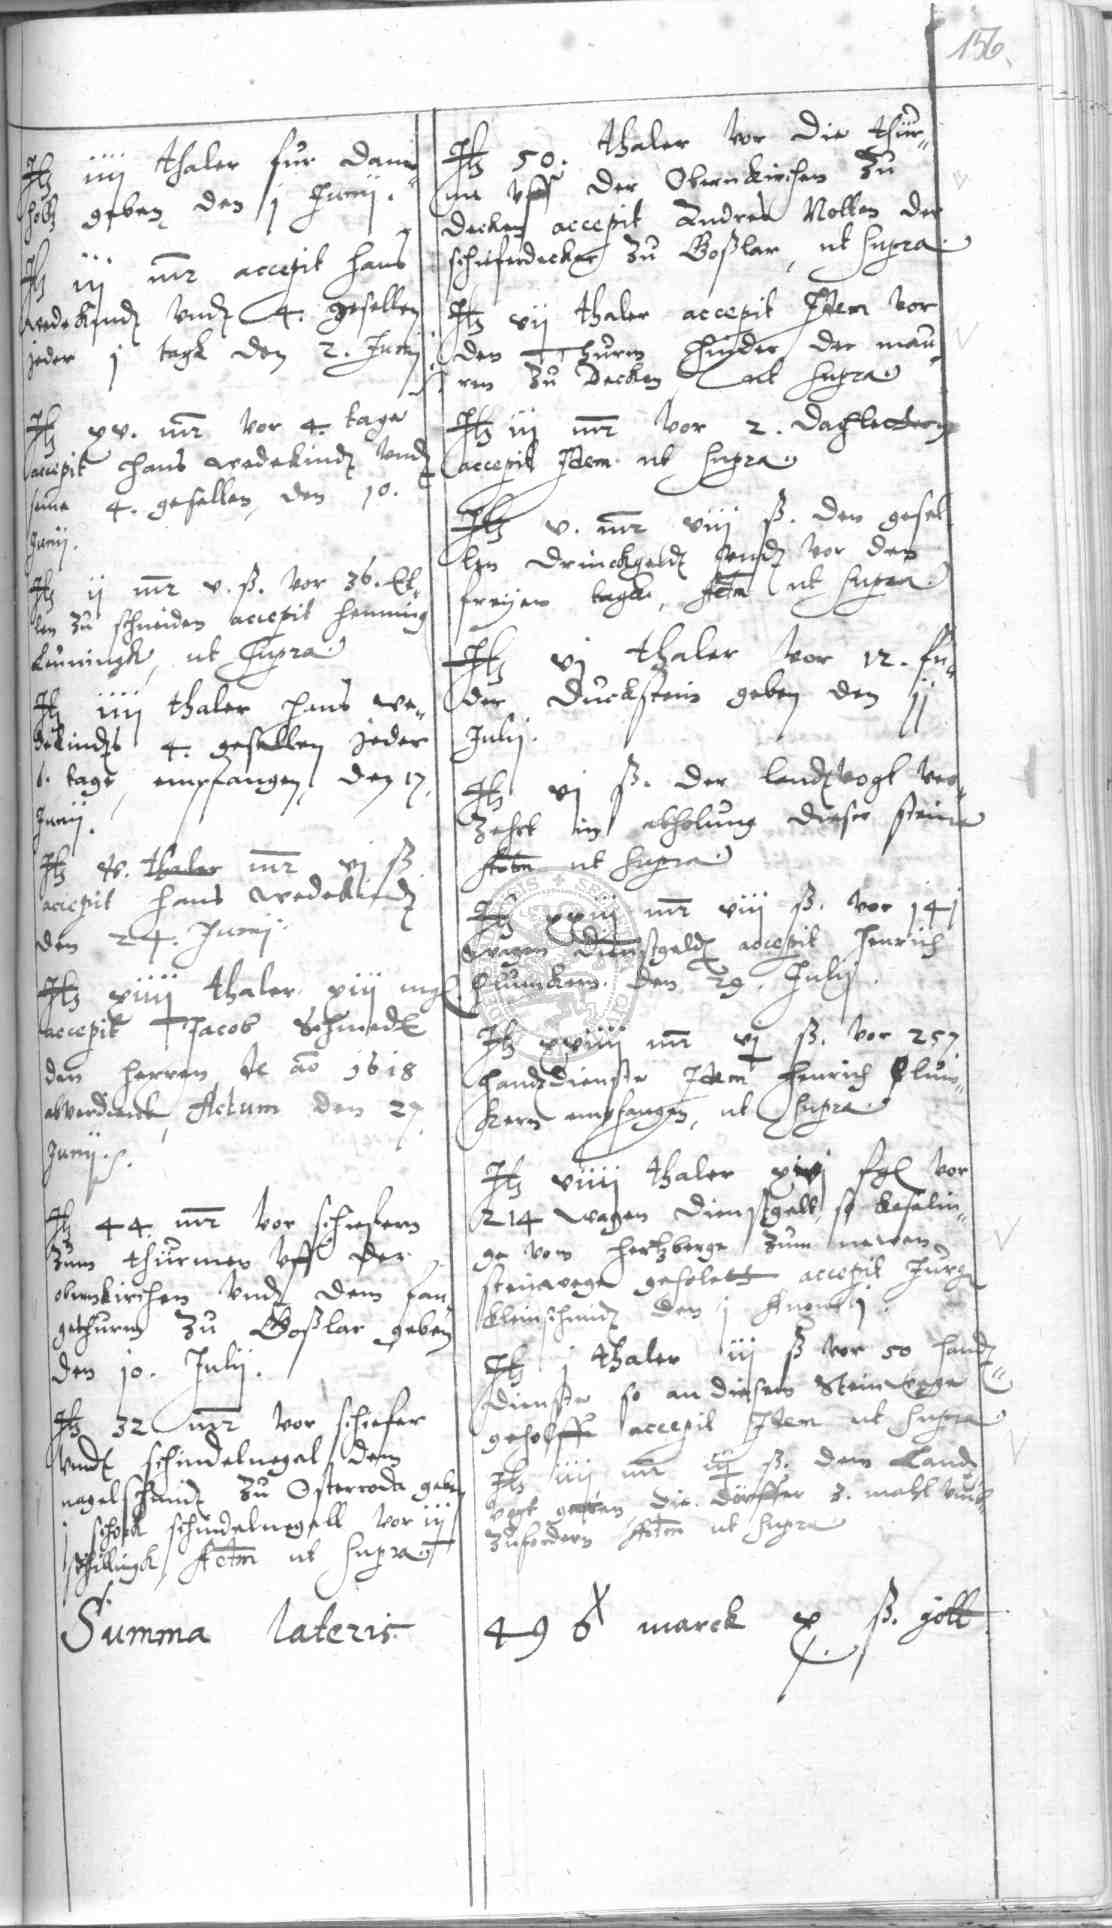 156.
Itz iiij thaler fur dann
holtz geben den j Junij.
Itz iij mr accepit hans
wedekindt vndt 4. gesellen
jeder j tagk den 2. Junij
Itz xv. mr vor 4. tage
accepit hans wedekindt vndt
seine 4. gesellen, den 10.
Junij.
Itz ij mr v. ß. vor 36. El-
len zu schneiden accepit henning
ut Supra
Itz iiij thaler hans we-
dekindts 4. gesellen jeder
tage, empfangen, den 17.
Junij.
Itz mr vj ß
accepit hans wedekindt
den 24. Junij.
Itz xiiij thaler xiij mgl
accepit Jacob Schmedt
den herren ao 1618
abverdienet, Actum den 27.
Junij.
Itz 44. mr vor schiefern
zum thürmen vff der
obernkirchen vndt dem fan-
gethurm zu Goßlar geben
den 10. Julij.
Itz 32 mr vor schiefer
vndt schindelnegel dem
nagelschmidt zu Osteroda geben
j schock schindelnegell vor iij
schillingk, Actm ut supra
Itz 50. thaler vor die thür-
me vff der Obernkirchen zu
decken accepit Andrea Nollen der
schieferdecker zu Goßlar, ut supra
Itz vij thaler accepit Idem vor
den Thurm hinder der mau-
ren zu decken ut supra
Itz iij mr vor 2. dachleddern
accepit Idem ut supra
Itz v. mr viij ß. den gesel
len drinckgeldt vndt vor den
freyen tagk, Actm ut supra
Itz vj thaler vor 12. fu-
der Duckstein geben den 11
Julij.
Itz vj ß. der landtvogt ver-
zehrt in abholung dieser steine
Actm ut supra
Itz xxiij mr viij ß. vor 141
wagen dienstgeldt accepit Henrich
den 29. Julij.
Itz xxiiij mr vj ß. vor 257
handtdienste Idem Henrich
empfangen, ut supra
Itz viiij thaler fgl vor
214 wagen dienstgelt, so keselin-
ge vom hertzberge zum newen
steinwege geholett accepit Jürg
kleinschmidt den j Augusti.
Itz j thaler iij ß vor 50 handt-
dienste so an diesem Steinwege
geholffen accepit Idem ut supra
Itz iiij mr iij ß. dem Landt
vogt geben, die dörffer 3. mahl
zufordern Actm ut supra
Summa lateris 496 marck x ß. gott